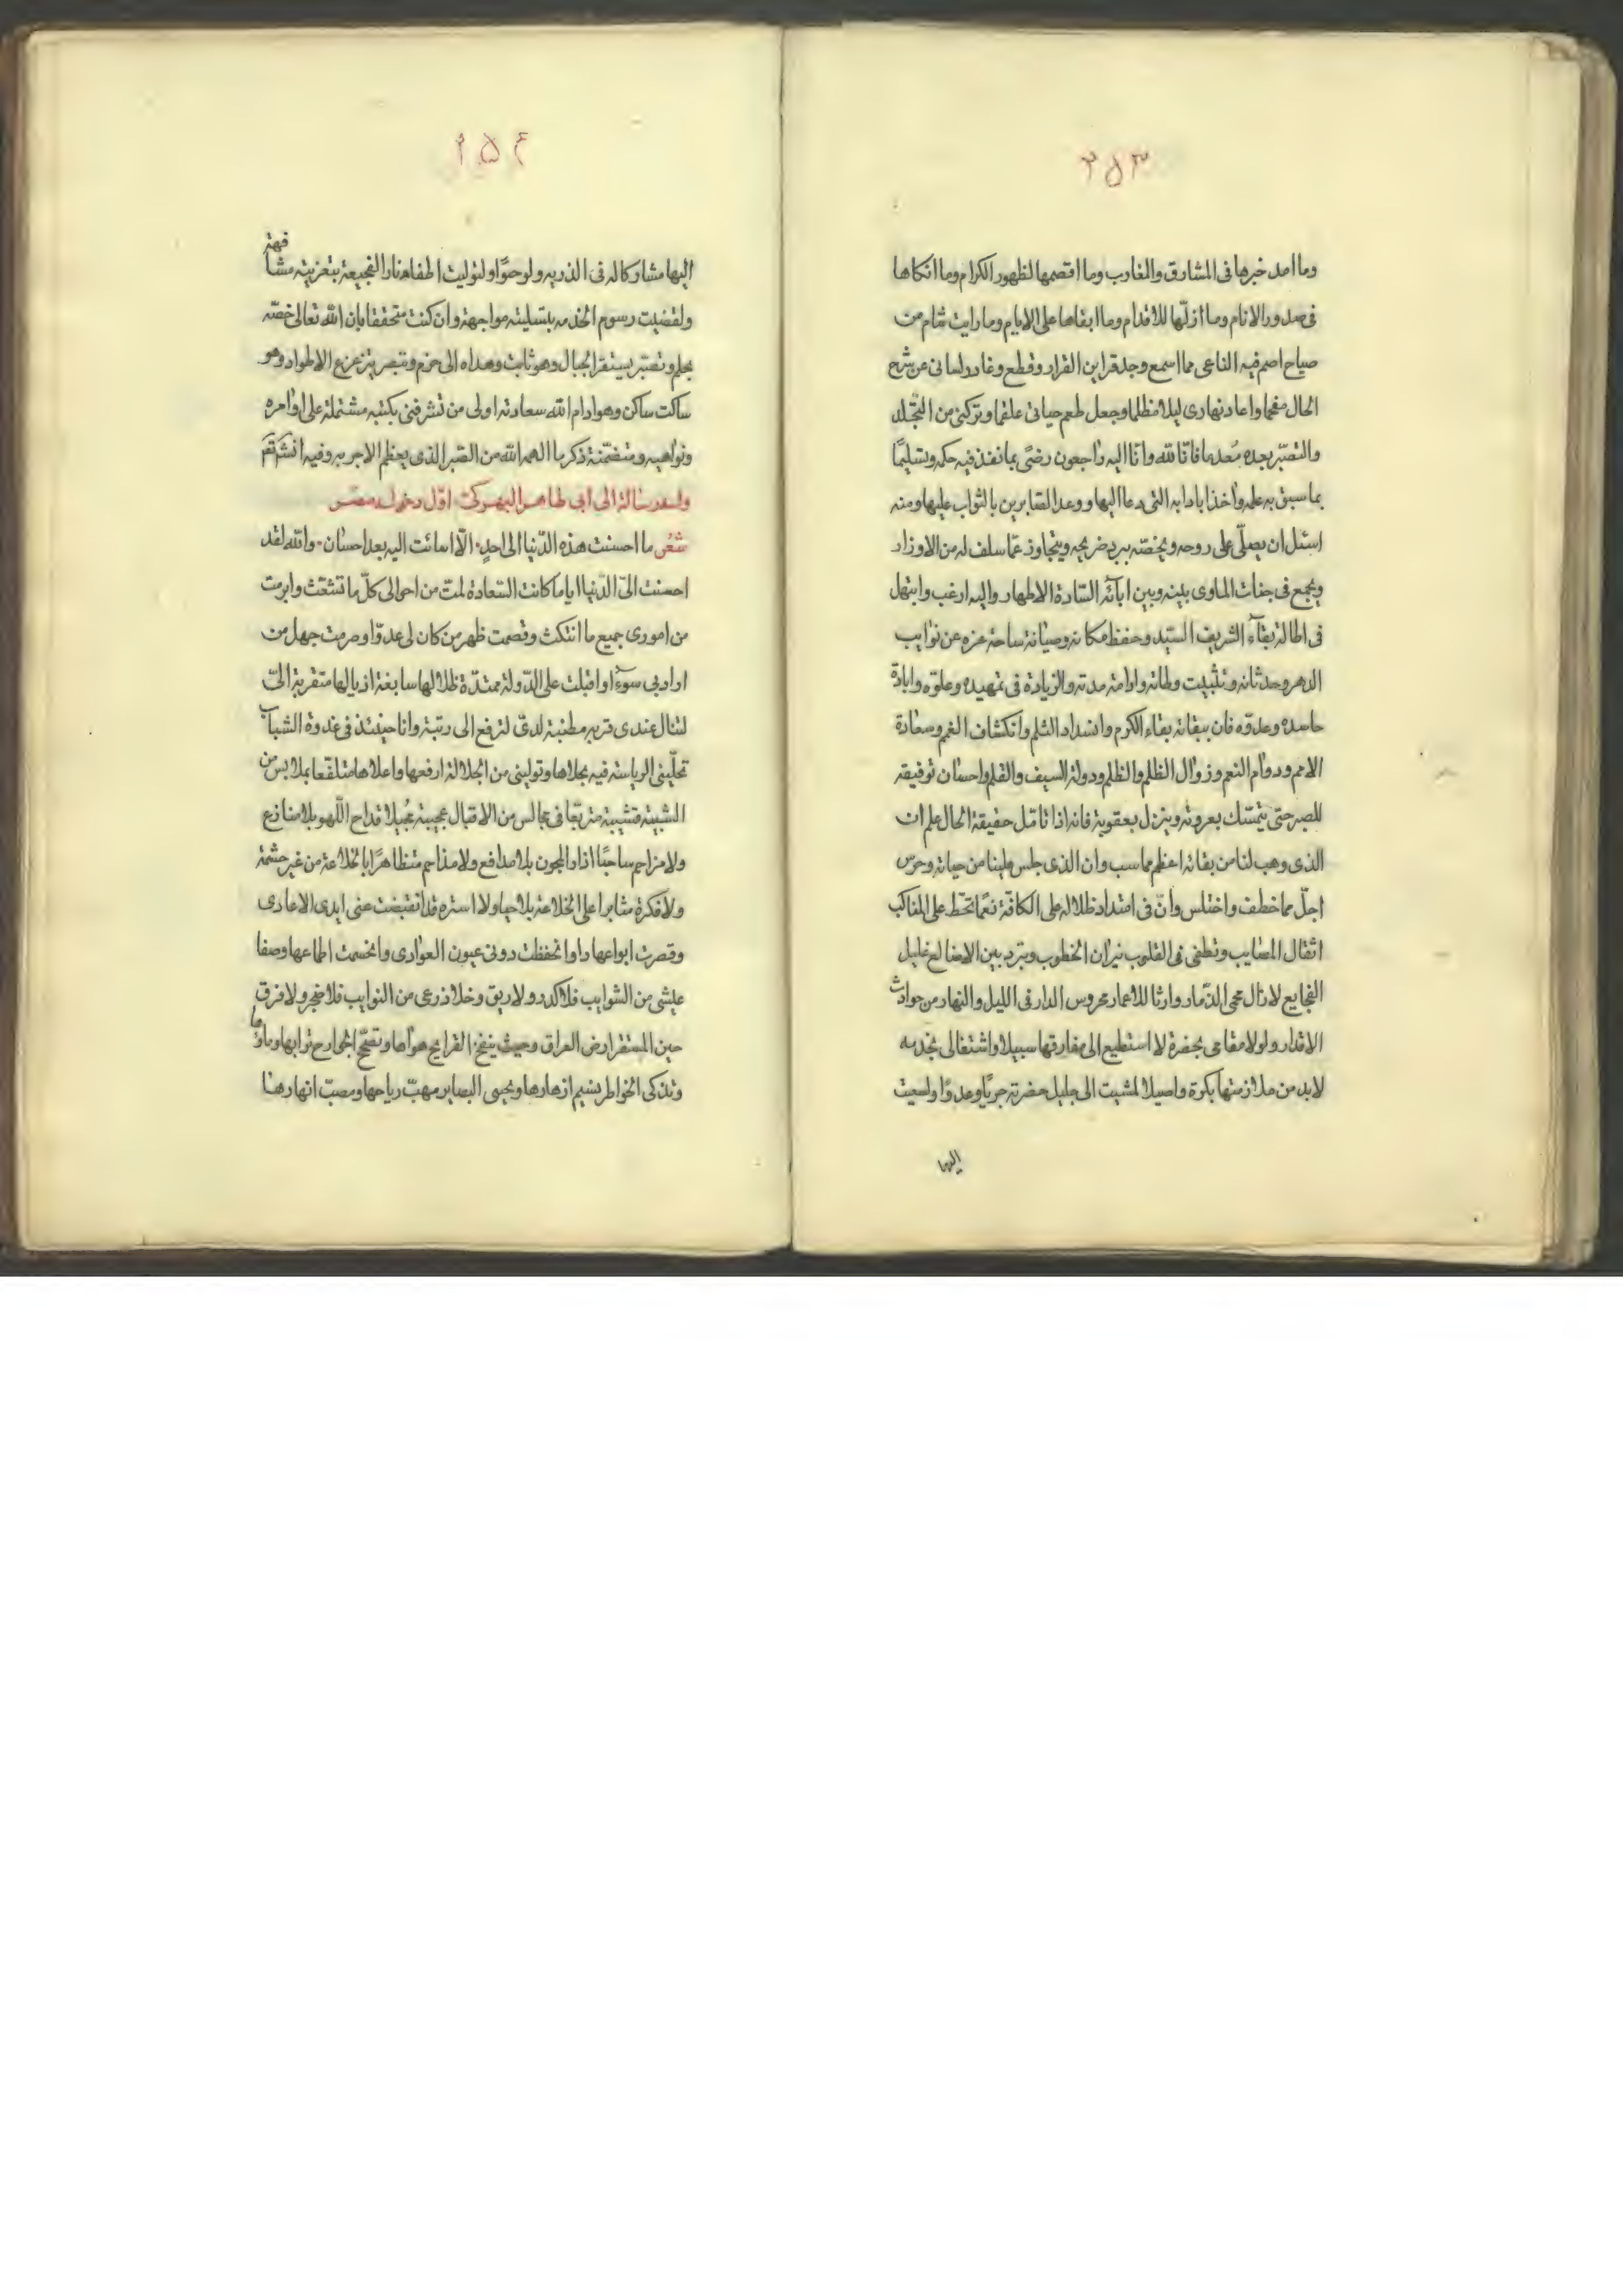 ٢٥٣
وما امد خبرها فى المشارق والمغارب وما اقصمها لظهور الكرام وما انكاها
فى صدور الانام وما ازلّها للاقدام وما ابقاها على الايام وما رايت شام من
صباح اصم فيه الناعى مما اسمع وجد قراين القرار وقطع وغادر لسانى عن شرح
الحال مفحما واعاد نهارى ليلا مظلما وجعل طعم حياتى علقما وتركنى من التجلّد
والتصبّر بعده مُعدما فانّا لله وانّا اليه راجعون رضىً بما نفذ فيه حكمه وتسليمًا
بما سبق به علمه واخذا بادابه التى دعا اليها ووعد الصّابرين بالثواب عليها ومنه
اسئل ان يصلّى على روحه ويخصّه ببرد ضريحه ويتجاوز عمّا سلف له من الاوزار
ويجمع فى جنات الماوى بينه وبين ابآئه السّادة الاطهار واليه ارغب وابتهل
فى اطالة بقآء الشريف السيّد وحفظ مكانه وصيانة ساحة عزه عن نوايب
الدهر وحدثانه وتثبيت وطاته وادامة مدته والزيادة فى تمهيده وعلوّه وابادة
حاسده وعدوّه فان ببقائه بقاء الكرم وانسداد الثلم وانكشاف الغم وسعادة
الامم ودوام النعم وزوال الظلم والظلم ودولة السيف والقلم واحسان توفيقه
للصبر حتى يتمسّك بعروته وينزل بعقوبة فانه اذا تامّل حقيقة الحال علم ان
الذى وهب لنا من بقائه اعظم مما سب وان الذى جلس علينا من حياته وحرس
اجلّ مما خطف واختلس وانّ فى امتداد ظلاله على الكافّة نعمًا تحّط على المناكب
اثقال المصايب وتطفى فى القلوب نيران الخطوب وتبرد بين الاضالع غليل
الفجايع لا زال محمى الذّمار وارثا للاعمار محروس الدار فى الليل والنهار من حوادث
الاقدار ولولا مقامى بحضرة لا استطيع الى مفارقتها سبيلا واشتغالى بخدمه
لا بد من ملازمتها بكرة واصيلا لمشيت الى جليل حضرته جريًا وعدوًا ولسعيت
اليها
٢٥٤
اليها مشاركا له فى الذريه ولو حبوًا ولتوليت اطفاء نار الفجيعة بتعزيته مشافهة
ولقضيت رسوم الخدمه بتسليته مواجهة وان كنت متحققا بان الله تعالى خصّه
بحلم وتصبّر يستقر الجبال وهو ثابت وهداه الى حزم وتبصر يتزعزع الاطواد وهو
ساكت ساكن وهو ادام الله سعادته اولى من تشرفنى بكتبه مشتملة على اوامره
ونواهيه ومتضمّنة ذكر ما الهمه الله من الصّبر الذى يعظم الاجر به وفيه انشآء
وله من رسالة الى ابى طاهر النهركتى اوّل دخوله مصر
شعر ما احسنت هذه الدّنيا الى احدٍ ٠ الّا اسائت اليه بعد احسان ٠ والله لقد
احسنت الىّ الدّنيا اياما كانت السّعادة لمت من احوالى كلّ ما تشعّث وابرمت
من امورى جميع ما انتكث وقصمت ظهر من كان لى عدوّا وصرمت جهل من
اراد بى سوءًا واقبلت على الدّولة ممتدّة ظلالها سابغة اذيالها متقربة الىّ
لتنال عندى قربه مطنبة لدىّ لترفع الى رتبة وانا حينئذ فى غدوة الشباب
تحلّينى الرياسته فيه بحلاها وتولينى من الجلالة ارفعها واعلاها متلفّعا بملابس من
الشبيبة قشيبة متربّعا فى مجالس من الاقبال عجيبة مُجيلا قداح اللّهو بلا منازع
ولا مزاحم ساحبًا اذاد المجون بلا مدافع ولا مذاحم متظاهرًا بالخلاعة من غير حشمة
ولا فكرة مثابرا على الخلاعة بلا حيا ولا استره قد انقبضت عنى ايدى الاعادى
وقصرت ابواعها داوا نحفظت دونى عيون العوادى وانحسمت اطماعها وصفا
عيشى من الشوايب فلا كدر ولا ريق وخلا ذرعى من النوايب فلا ضجر ولا فرق
حين المستقر ارض العراق وحيث ينفخ القرايح هواها وتصحّ الجوارح ترابها وماؤها
وتذكى الخواطر نسيم ازهارها ويحيى البصاير مهبّ رياحها ومصبّ انهارها